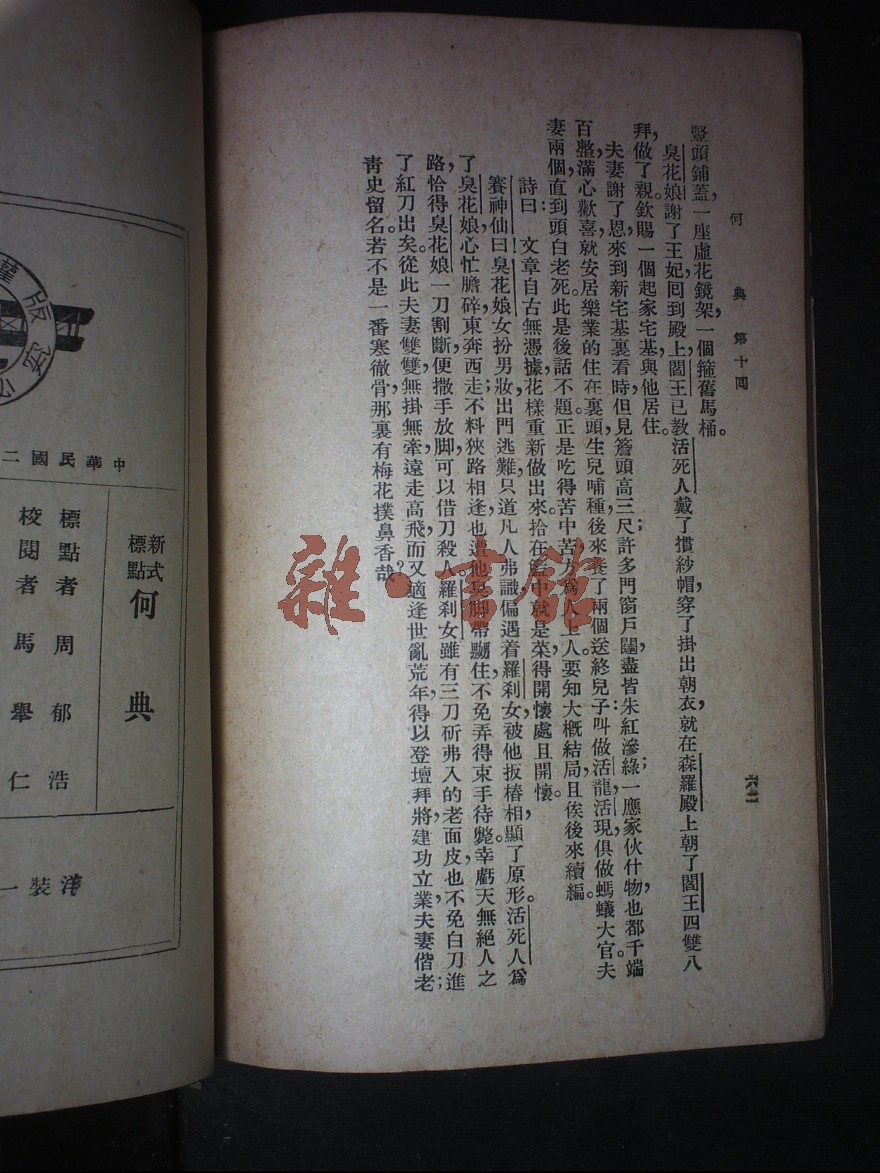 何典 第十回
豎頭鋪蓋,一座虛花鏡架,一個箍舊馬桶。
臭花娘謝了王妃,回到殿上,閻王已敎活死人戴了慣紗帽,穿了掛出朝衣,就在森羅殿上朝了閻王四雙八
拜,做了親。欽賜一個起家宅基與他居住。
夫妻謝了恩,來到新宅基裏看時,但見簷頭高三尺;許多門窗戶闥,盡皆朱紅滲綠;一應家伙什物,也都千端
百整,滿心歡喜,就安居樂業的住在裏頭,生兒哺種,後來養了兩個送終兒子,叫做活龍,活現,俱做螞蟻大官。夫
妻兩個,直到頭白老死。此是後話不題。正是吃得苦中苦,方爲人上人。要知大槪結局,且俟後來續編。
詩曰:文章自古無憑據,花樣重新做出來。拾在籃中就是菜,得開懷處且開懷。
賽神仙曰:臭花娘女扮男妝,出門逃難,只道凡人弗識,偏遇着羅刹女,被他扳樁相,顯了原形。活死人爲
了臭花娘,心忙膽碎,東奔西走;不料狹路相逢,也遭他臭脚帶嬲住,不免弄得束手待斃。幸虧天無絕人之
路,恰得臭花娘一刀割斷,便撒手放脚,可以借刀殺人。羅刹女雖有三刀斫弗入的老面皮,也不免白刀進;
了紅刀出矣。從此夫妻雙雙,無掛無牽,遠走高飛,而又適逢世亂荒年,得以登壇拜將,建功立業,夫妻偕老,
靑史留名。若不是一番寒徹骨,那裏有梅花撲鼻香哉?
六二
版
究
中華民國二
新式
標點
何典
標點者 周郁浩
校閱者 馬舉仁
洋裝一
雜·書館